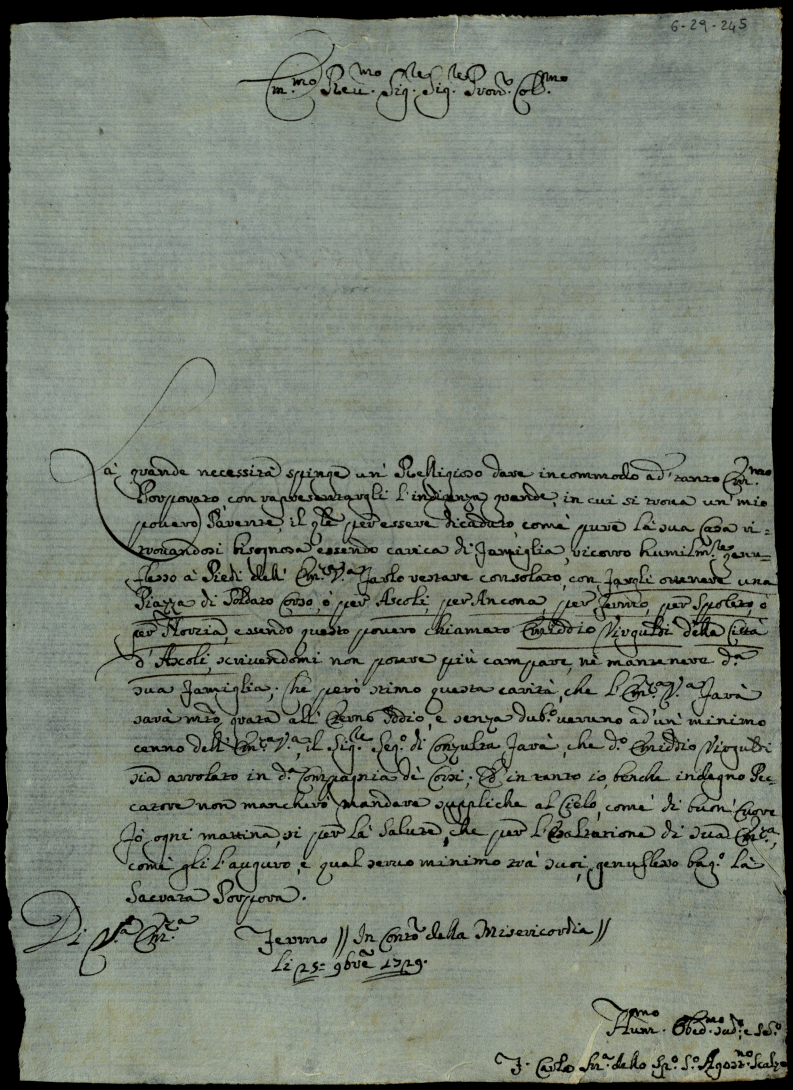 6-29-245
Em.mo Reu.mo Sig.re Sig.re Pron̄. Coll.mo
La' grande necessità spinge un' Religioso dare incommodo ad' tanto Em.mo
Porporato con rappresentargli l'indigenza grande, in cui si troua un' mio
pouero Parente, il q̄le per essere dicaduto come' pure la' sua Casa ri=
trouandosi bisognosa essendo carica di famiglia, ricorro humilm.te genu=
flesso a' Piedi dell' Em.za V.a farlo restare consolato, con fargli ottenere una
Piazza di Soldato Corso, o' per Ascoli, per Ancona, per fermo, per Spoleto, o
per Norzia, essendo questo pouero chiamato Emiddio Virgulti della Città
d'Ascoli, scriuendomi non potere più campare, nè mantenere d.a
sua famiglia; che però stimo questa carità, che l'Em.za V.a farà
sarà m̄to grata all' Eterno Iddio, e senza dub.o ueruno ad' un' minimo
cenno dell' Em.za V.a, il Sig.re Seg.o di Conzulta farà, che d.o Emiddio Virgulti
sia arrolato in d.a Compagnia di' Corsi; Et in tanto io, benche indegno Pec=
catore non mancherò mandare suppliche al Cielo, come' di buon' Cuore
fò ogni mattina, si per la' Salute, che per l'Esaltazione di Sua Em.za,
come' gli l'auguro, e qual seruo minimo trà suoi, genuflesso bag.o la'
Sacrata Porpora.
Di V.a Em.za Fermo // In Conto della Misericordia //
li 25= 9bre 1729.
Hum.mo Obed.mo sud.o e Se.o
F. Carlo Ant.o dello Sp.o S.o Agost.no Scalzo